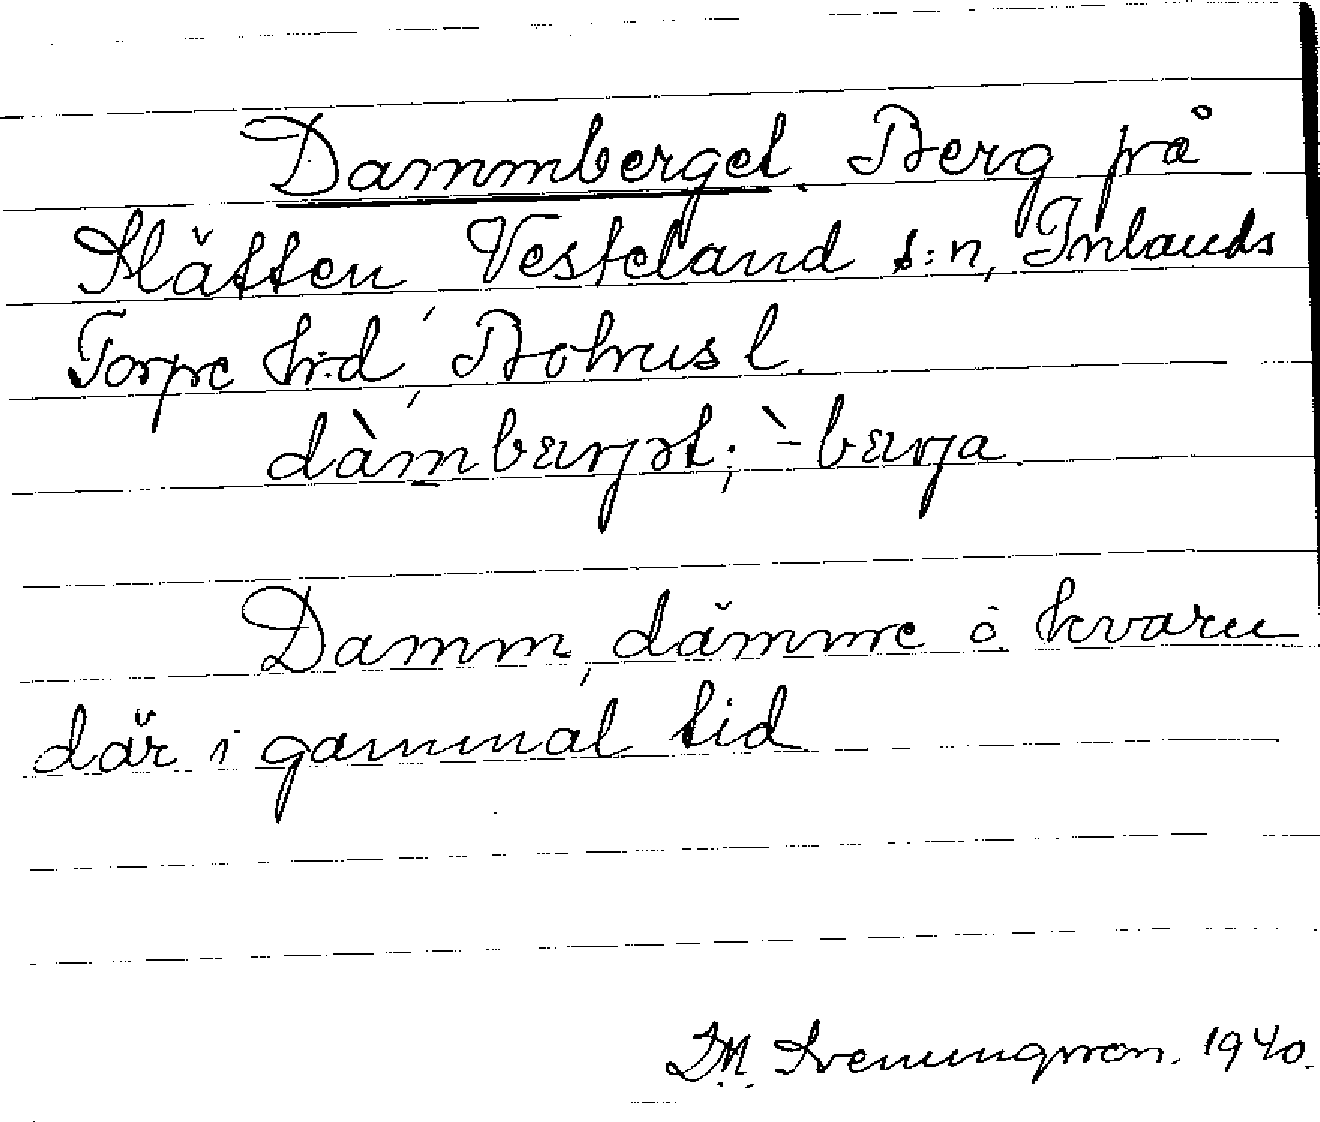 Dammberget. Berg på
Slätten, Vesterland s:n, Inlands
Torpe h:d, Bohusl.
dàmbærjət; `-bærja
Damm, dämme o kvarn
där i gammal tid
J.M. Svenungsson. 1940.